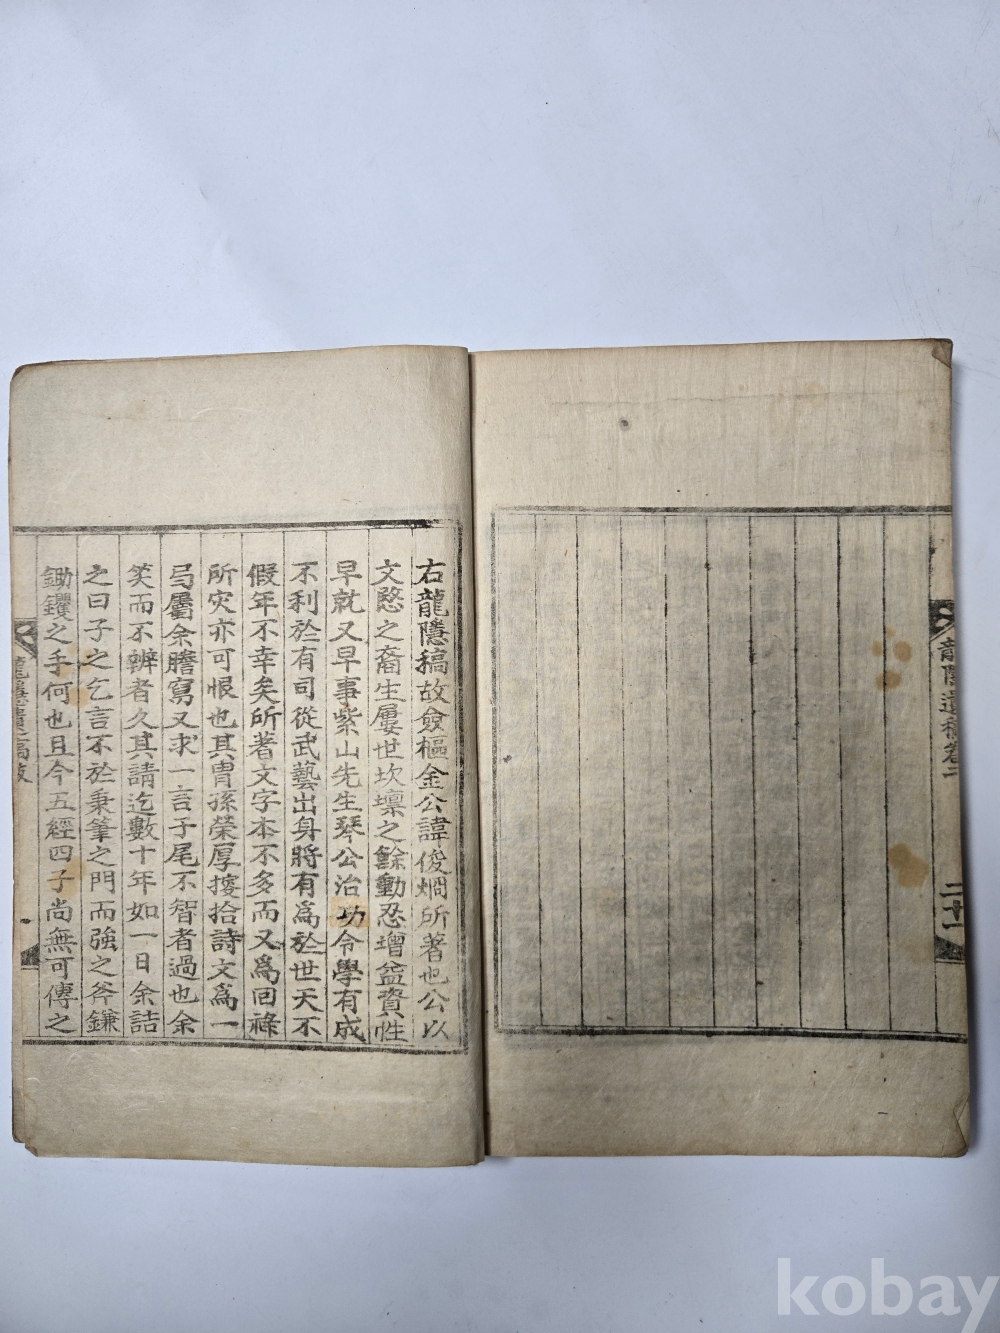 龍隱遺稿卷二
二十一
右龍隱稿故僉樞金公諱俊炯所著也公以
文愍之裔生屢世坎壈之餘動忍增益資性
早就又早事紫山先生琴公治功令學有成
不利於有司從武藝出身將有爲於世天不
假年不幸矣所著文字本不多而又爲回祿
所灾亦可恨也其胄孫榮厚撥拾詩文爲一
弓屬余謄寫又求一言子尾不智者過也余
笑而不辨者久其請迄數十年如一日余詰
之曰子之乞言不於秉筆之門而強之斧鎌
鋤钁之手何也且今五經四子尚無可傳之
龍隱遺稿跋
kobay